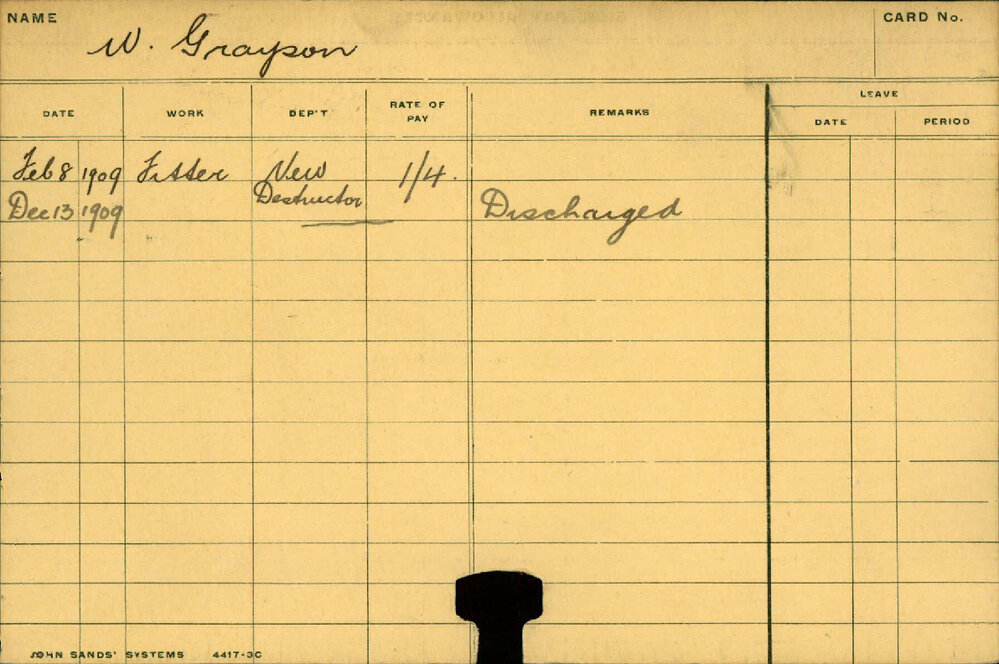 NAME W. Grayson CARD No.
LEAVE
DATE WORK DEP'T RATE OF PAY REMARKS DATE PERIOD
Feb 8 1909 Fitter New Destructor 1/4.
Dec 13 1909 Discharged
JOHN SANDS' SYSTEMS 4417-3C